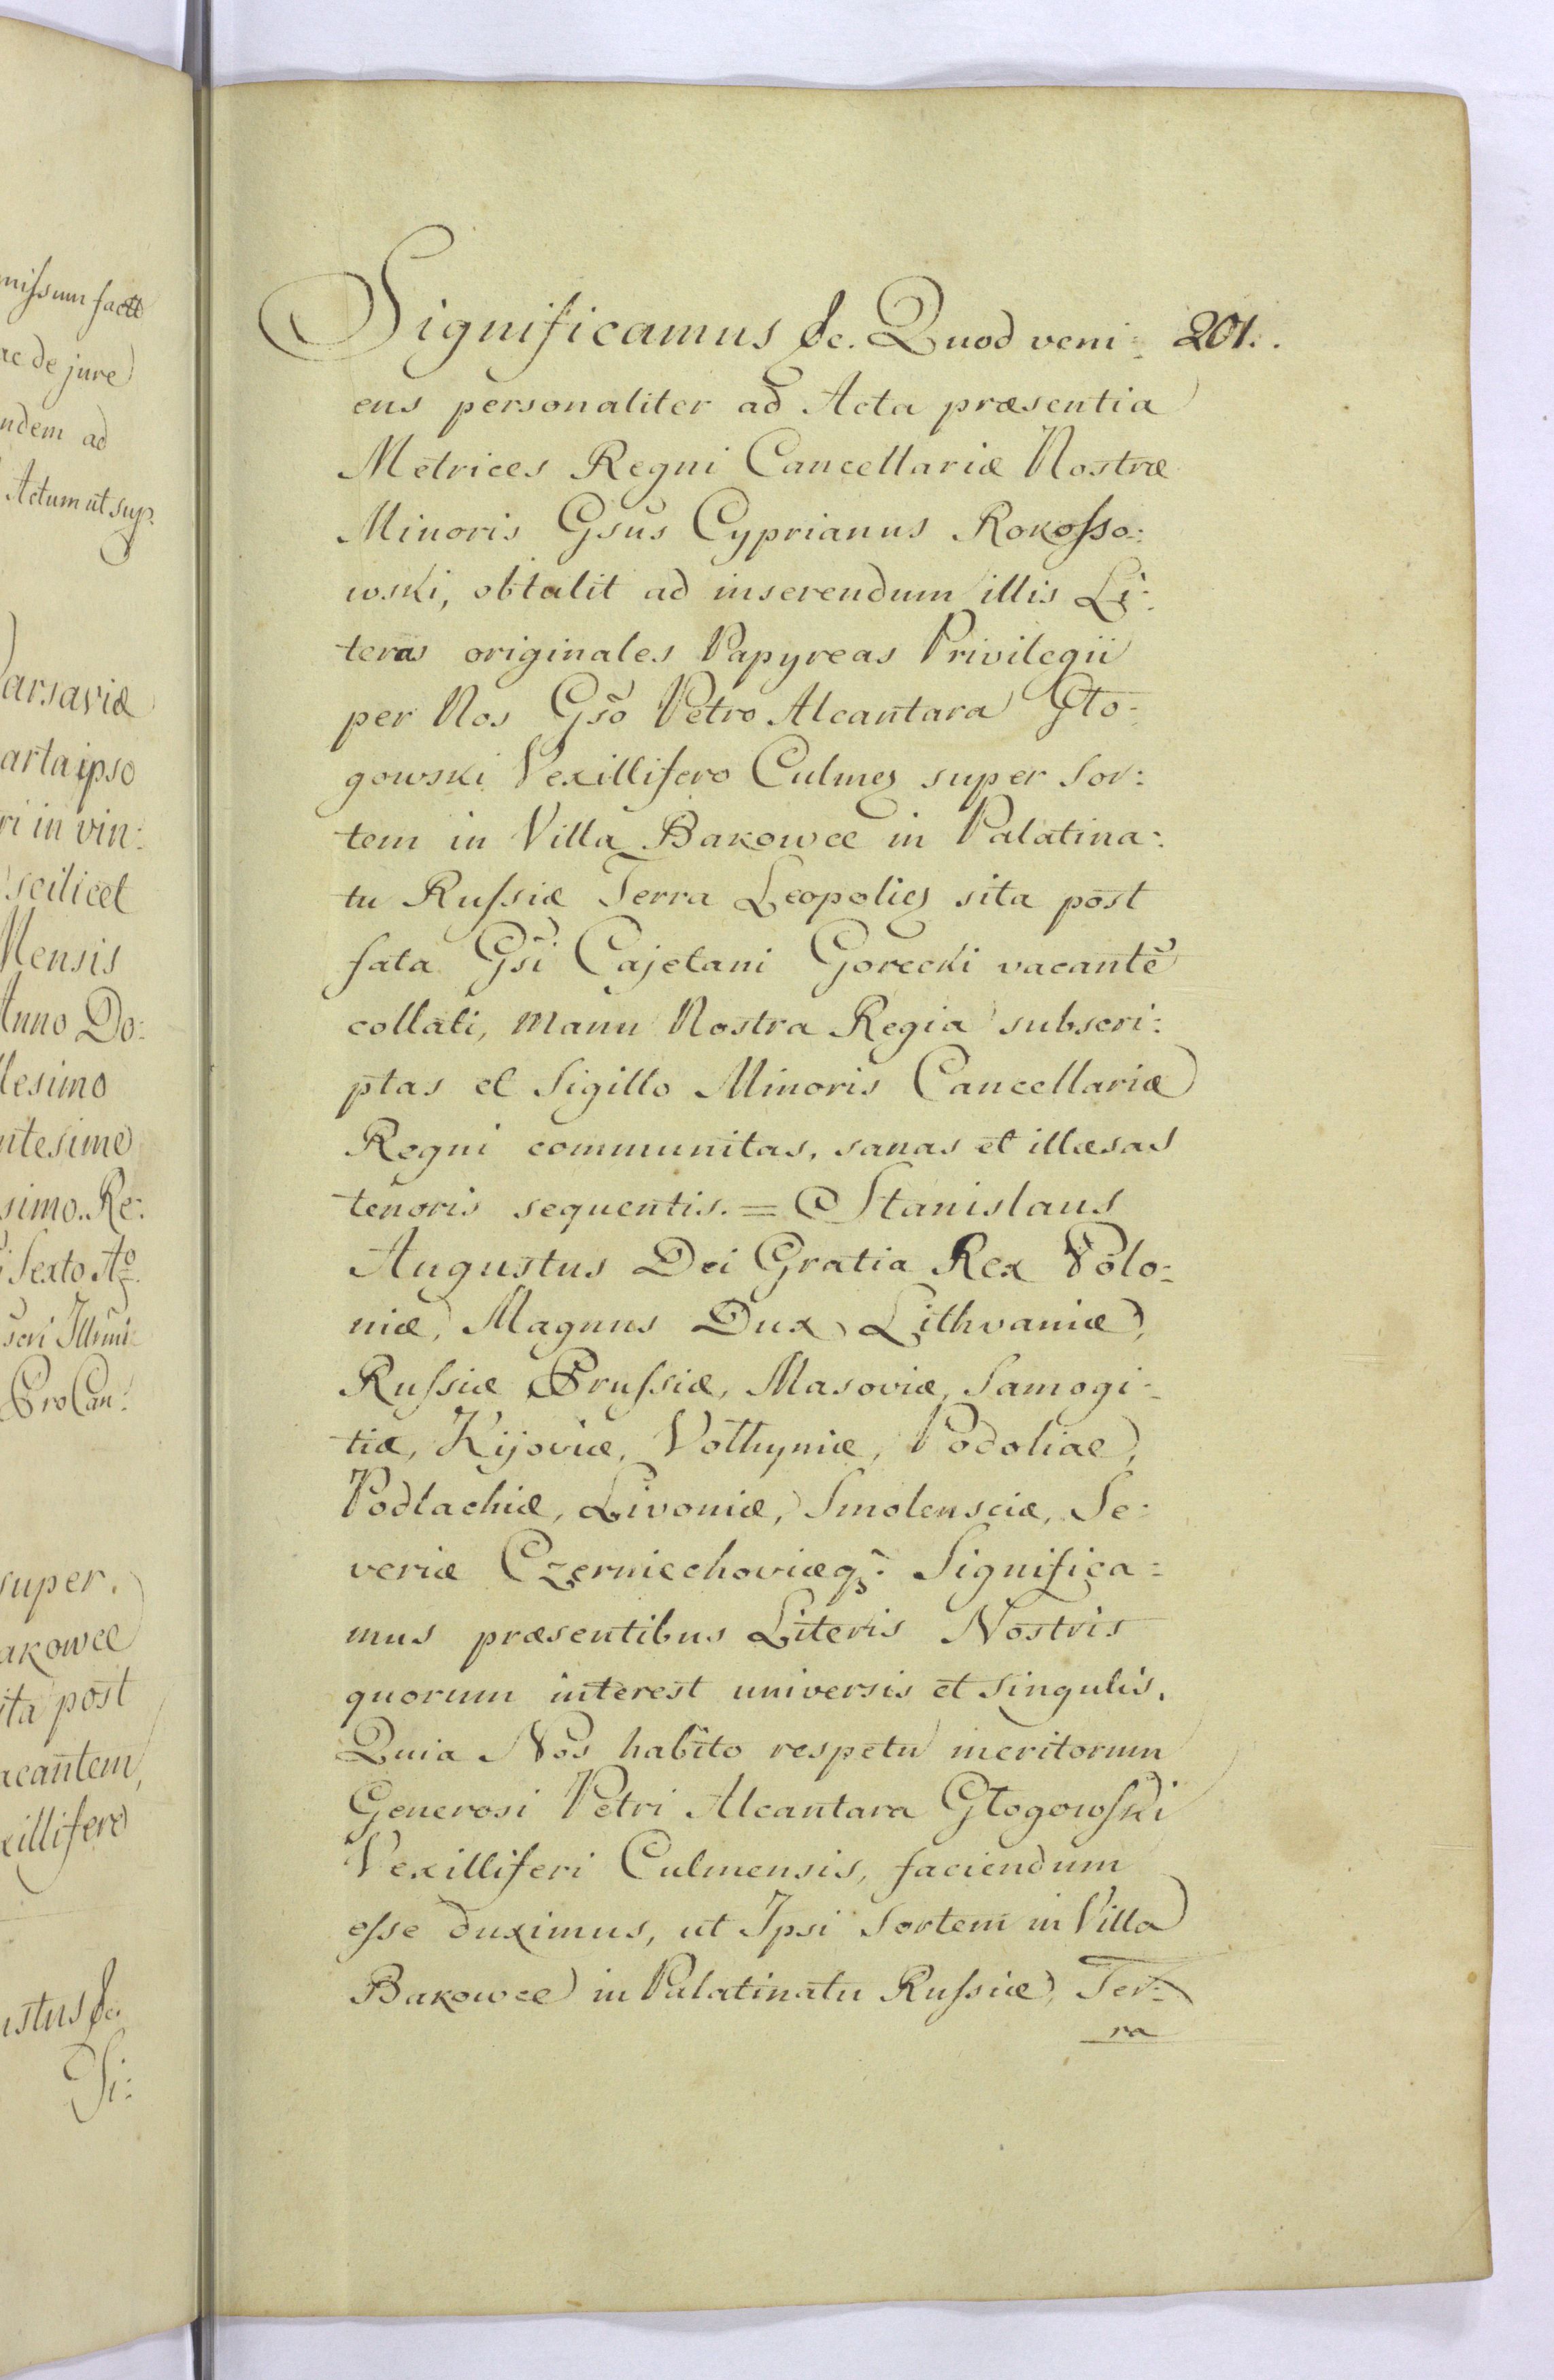 missum facit
ac de jure
ndem ad
Actum ut sup.
arsaviæ
arta ipso
ri in vin:
scilicet
Mensis
Anno Do:
lesimo
ntesimo
simo. Re:
i Sexto Aº
seri Illmi
ProCan:
super
akowce
ita post
acantem,
xillifero
ustus &c.
Si:
Significamus &c. Quod veni: 201.
ens personaliter ad Acta præsentia
Metrices Regni Cancellariæ Nostræ
Minoris Gsus Cyprianus Rokosso:
wski, obtulit ad inserendum illis Li:
teras originales Papyreas Privilegii
per Nos Gsõ Petro Alcantara Gło:
gowski Vexillifero Culmeȝ super Sor:
tem in Villa Bakowce in Palatina:
tu Russiæ Terra Leopolieȝ sita post
fata Gsĩ Cajetani Gorecki vacantẽ
collati, manu Nostra Regia subscri:
ptas et Sigillo Minoris Cancellariæ
Regni communitas, sanas et illæsas
tenoris sequentis. = Stanislaus
Augustus Dei Gratia Rex Polo:
niæ, Magnus Dux Lithvaniæ,
Russiæ Prussiæ, Masoviæ, Samogi:
tiæ, Kijoviæ, Volhyniæ, Podoliae,
Podlachiæ, Livoniæ, Smolensciæ, Se:
veriæ Czerniechoviæqȝ. Significa:
mus præsentibus Literis Nostris
quorum interest universis et singulis.
Quia Nos habito respetu meritorum
Generosi Petri Alcantara Głogowski
Vexilliferi Culmensis, faciendum
esse duximus, ut Ipsi Sortem in Villa
Bakowce in Palatinatu Russiæ, Ter:
ra